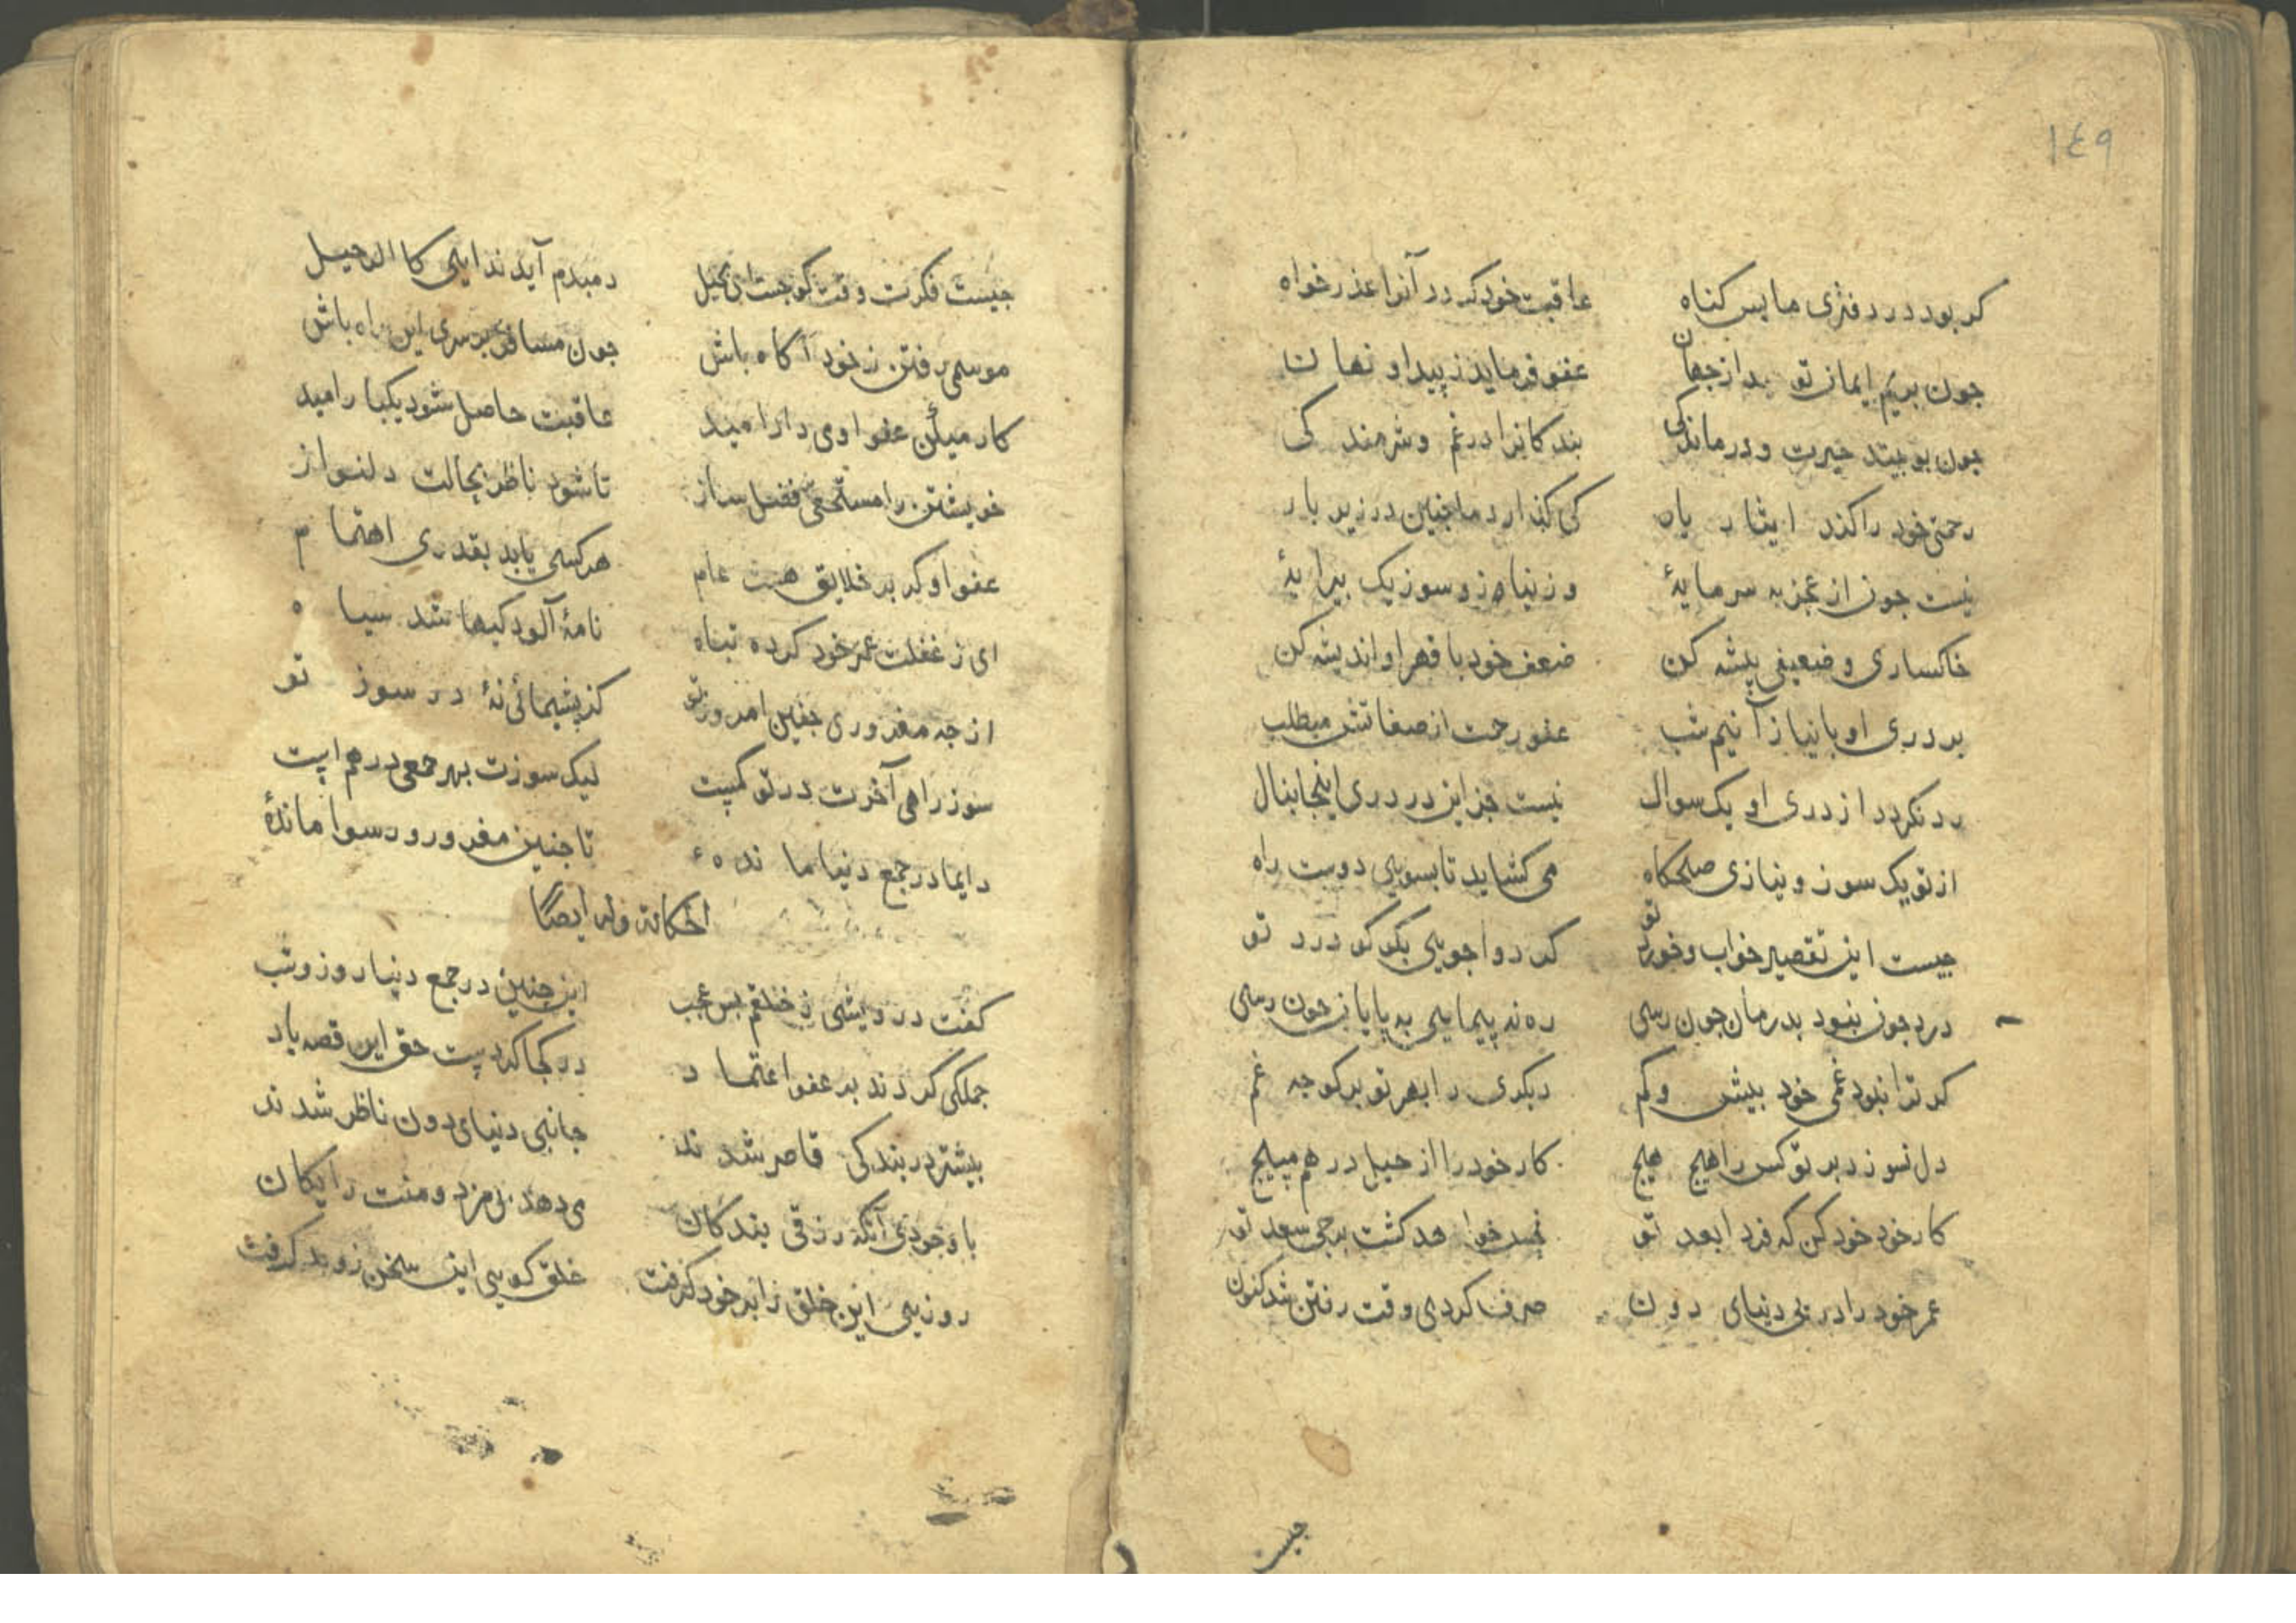 ١٤٩
کر بود در دفتری ما بس کناه عاقبت خود کردد آنرا عذر خواه
جون بریم ایمان تو بد از جهان عفو فرماید ز پیدا و نهان
جون بو بیند حیرت و درماندکی بندکانرا در غم و شرمندکی
رحمتی خود را کند ایثار یار کی کذارد ما جنین در زیر بار
نیست جون از عجز به سرمایۀ وز نیاز و سوز یک پیرایۀ
خاکساری و ضعیفی پیشه کن ضعف خود با قهر او اندیشه کن
بر دری او با نیاز آ نیم شب عفو رحمت از صفاتش میطلب
رد نکردد از دری او یک سوال نیست جز این در دری اینجا بنال
از تو یک سوز و نیازی صلحکاه می کشاید تا بسویی دوست راه
جیست این تقصیر خواب و خورد تو کر دوا جویی بکو کو درد تو
درد جون نبود بدرمان جون رسی ره نه پیمایی به پایان جون رسی
کر ترا نبود غمی خود بیش و کم دیکری را بهر تو برکو جه غم
دل نسوزد بر تو کس را هیج هیج کار خود را از حیل درهم مپیج
کار خود خود کن که فردا بعد تو نحس خواهد کشت برجی سعد تو
عمر خود را در پی دنیای دون صرف کردی وقت رفتن شد کنون
جیست
جیست فکرت وقت کوجست ای بخیل دمبدم آید ندایی کالرحیل
موسمی رفتن ز خود آکاه باش جون مسافر بر سری این راه باش
کار میکن عفو اوی دار امید عاقبت حاصل شود یکبار امید
خویشتن را مستحقی فضل ساز تا شود ناظر بحالت دلنواز
عفو او کر بر خلایق هست عام هر کسی یابد بقدری اهتمام
ای ز غفلت عمر خود کرده تباه نامۀ آلودکیها شد سیاه
از جه مغروری جنین امروز تو کز پشیمانی نۀ در سوز تو
سوز راهی آخرت در تو کمیست لیک سوزت بهر جمعی درهم ایست
دایما در جمع دنیا مانده تا جنین مغرور و رسوا ماندۀ
الحکایة وله ایضًا
کفت درویشی ز خلقم بس عجب این جنین در جمع دنیا روز و شب
جملکی کردند بر عفو اعتماد در کجا کردست حق این قصه یاد
بیشتر در بندکی قاصر شدند جانبی دنیای دون ناظر شدند
با وجودی آنکه رزقی بندکان می دهد بی مزد و منت رایکان
روزیی این خلق را بر خود کرفت خلق کویی این سخن زو بد کرفت